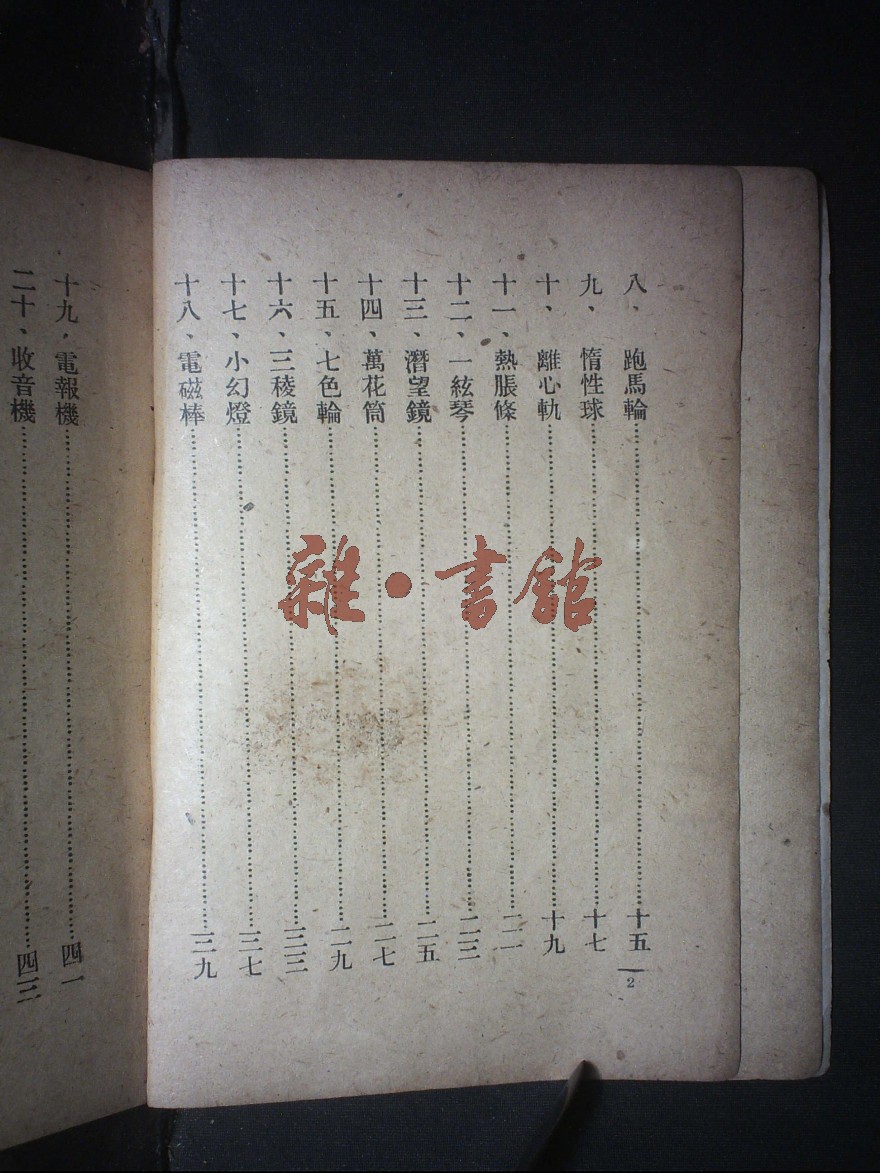 八、跑馬輪……十五
九、惰性球……十七
十、離心軌……十九
十一、熱脹條……二一
十二、一絃琴……二三
十三、潛望鏡……二五
十四、萬花筒……二七
十五、七色輪……二九
十六、三稜鏡……三三
十七、小幻燈……三七
十八、電磁棒……三九
2
十九、電報機……四一
二十、收音機……四三
雜·書館